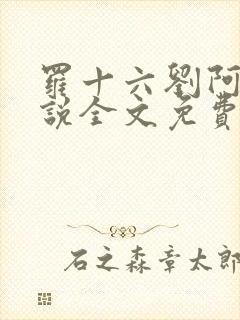 羅十六劉阿
說全文免費
石之森章太郎